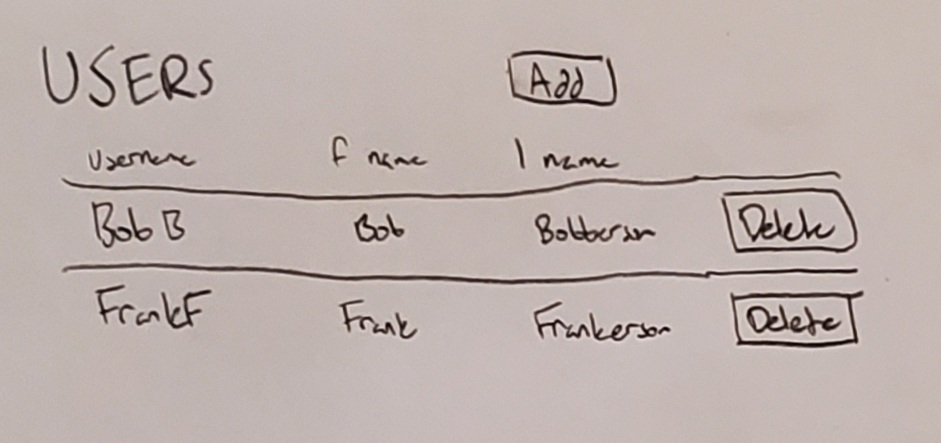 USERS Add
username f name l name
BobB Bob Bobberson Delete
FrankF Frank Frankerson Delete